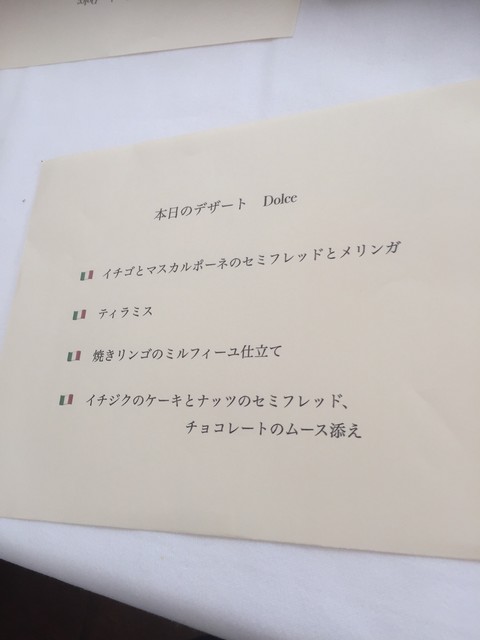 本日のデザート Dolce
イチゴとマスカルポーネのセミフレッドとメリンガ
ティラミス
焼きリンゴのミルフィーユ仕立て
イチジクのケーキとナッツのセミフレッド、
チョコレートのムース添え